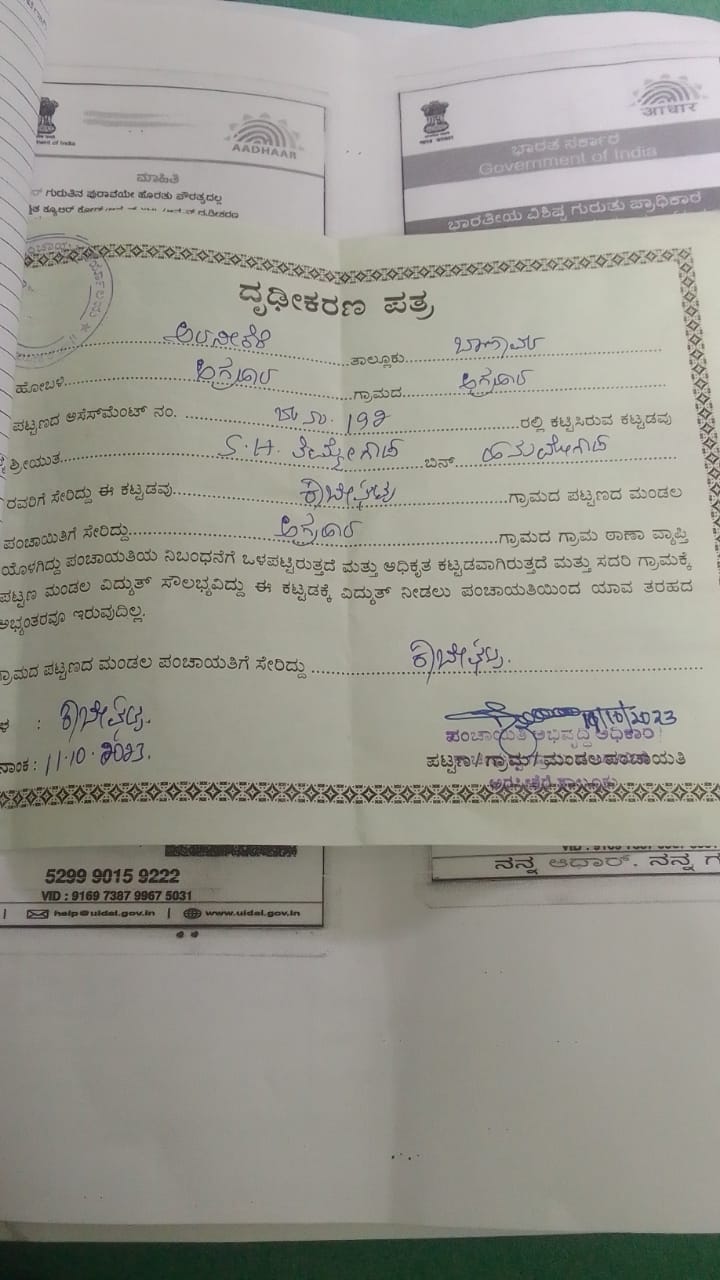 AADHAAR
ment of India
ಮಾಹಿತಿ
ಗುರುತಿನ ಪುರಾವೆಯೇ ಹೊರತು ಪೌರತ್ವದಲ್ಲ
आधार
ಭಾರತ ಸರ್ಕಾರ
Government of India
ಭಾರತೀಯ ವಿಶಿಷ್ಟ ಗುರುತು ಪ್ರಾಧಿಕಾರ
ದೃಢೀಕರಣ ಪತ್ರ
ಅರಸೀಕೆರೆ ತಾಲ್ಲೂಕು ಬಾಣಾವರ
ಹೋಬಳಿ ಅಗ್ರಹಾರ ಗ್ರಾಮದ ಅಗ್ರಹಾರ
ಪಟ್ಟಣದ ಅಸೆಸ್‌ಮೆಂಟ್ ನಂ. ರಲ್ಲಿ ಕಟ್ಟಿಸಿರುವ ಕಟ್ಟಡವು
ಶ್ರೀಯುತ S.H. ತಿಮ್ಮೇಗೌಡ ಬಿನ್
ರವರಿಗೆ ಸೇರಿದ್ದು ಈ ಕಟ್ಟಡವು ಗ್ರಾಮದ ಪಟ್ಟಣದ ಮಂಡಲ
ಪಂಚಾಯಿತಿಗೆ ಸೇರಿದ್ದು ಅಗ್ರಹಾರ ಗ್ರಾಮದ ಗ್ರಾಮ ಠಾಣಾ ವ್ಯಾಪ್ತಿ
ಯೊಳಗಿದ್ದು ಪಂಚಾಯತಿಯ ನಿಬಂಧನೆಗೆ ಒಳಪಟ್ಟಿರುತ್ತದೆ ಮತ್ತು ಅಧಿಕೃತ ಕಟ್ಟಡವಾಗಿರುತ್ತದೆ ಮತ್ತು ಸದರಿ ಗ್ರಾಮಕ್ಕೆ
ಪಟ್ಟಣ ಮಂಡಲ ವಿದ್ಯುತ್ ಸೌಲಭ್ಯವಿದ್ದು ಈ ಕಟ್ಟಡಕ್ಕೆ ವಿದ್ಯುತ್ ನೀಡಲು ಪಂಚಾಯತಿಯಿಂದ ಯಾವ ತರಹದ
ಅಭ್ಯಂತರವೂ ಇರುವುದಿಲ್ಲ.
ಗ್ರಾಮದ ಪಟ್ಟಣದ ಮಂಡಲ ಪಂಚಾಯತಿಗೆ ಸೇರಿದ್ದು
ಳ :
ನಾಂಕ : 11.10.2023.
11/10/2023
ಪಂಚಾಯತಿ ಅಭಿವೃದ್ಧಿ ಅಧಿಕಾರಿ
ಪಟ್ಟಣ/ಗ್ರಾಮ/ಮಂಡಲಪಂಚಾಯತಿ
5299 9015 9222
VID : 9169 7387 9967 5031
help@uidai.gov.in | www.uidai.gov.in
ನನ್ನ ಆಧಾರ್, ನನ್ನ ಗ